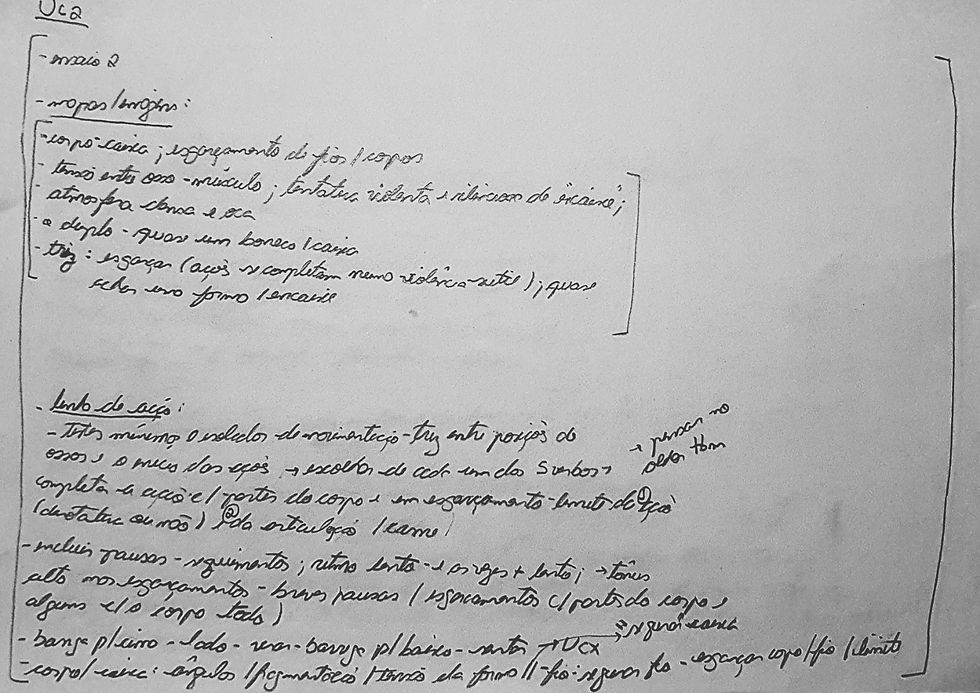 Oca
- ensaio 2
- mapas/imagens:
- corpo-caixa; esgarçamento de fios/corpos
- tensão entre osso-músculo; tentativa violenta e silenciosa de "encaixe";
- atmosfera densa e oca
- o duplo - quase um boneco/caixa
- triz: esgarçar (ações se completam numa violência-sutil); quase
achar uma forma/encaixe
- de ação:
- mínimos e isolados de movimentação - triz entre posições de
ossos e o início das ações → escolher de cada um dos 5 verbos, → pensar no
olhar tbm
completar a ação c/ partes do corpo e em esgarçamento-limite da ① ação
(denotativa ou não) ② da articulação/carne/
- incluir pausas - seguimentos; ritmo lento - e às vezes + lento; → tônus
alto nos esgarçamentos - breves pausas (esgarçamentos c/ partes do corpo e
alguns c/ o corpo todo)
- barriga p/ cima - lado - barriga p/ baixo - → segurar caixa
- corpo/caixa: ângulos/fragmentação/tensão da forma // - fio: segurar fio - esgarçar corpo/fio/limite